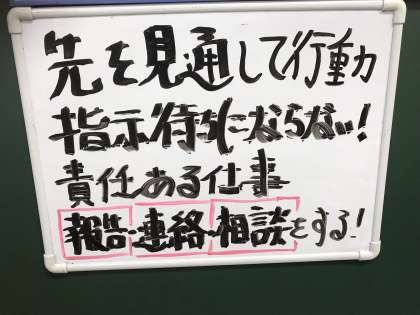 先を見通して行動
指示待ちにならない!
責任ある仕事
報告・連絡・相談をする!